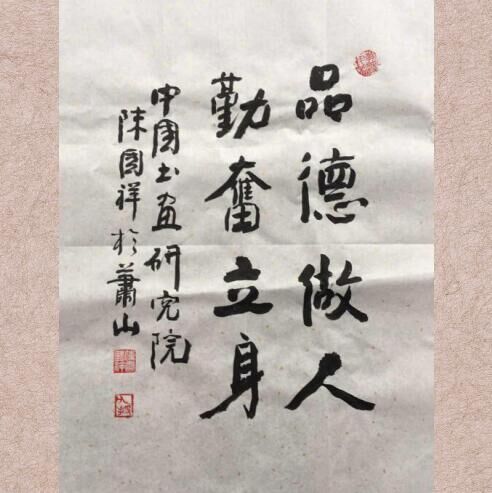 品德做人
勤奮立身
中国书画研究院
陈国祥於萧山